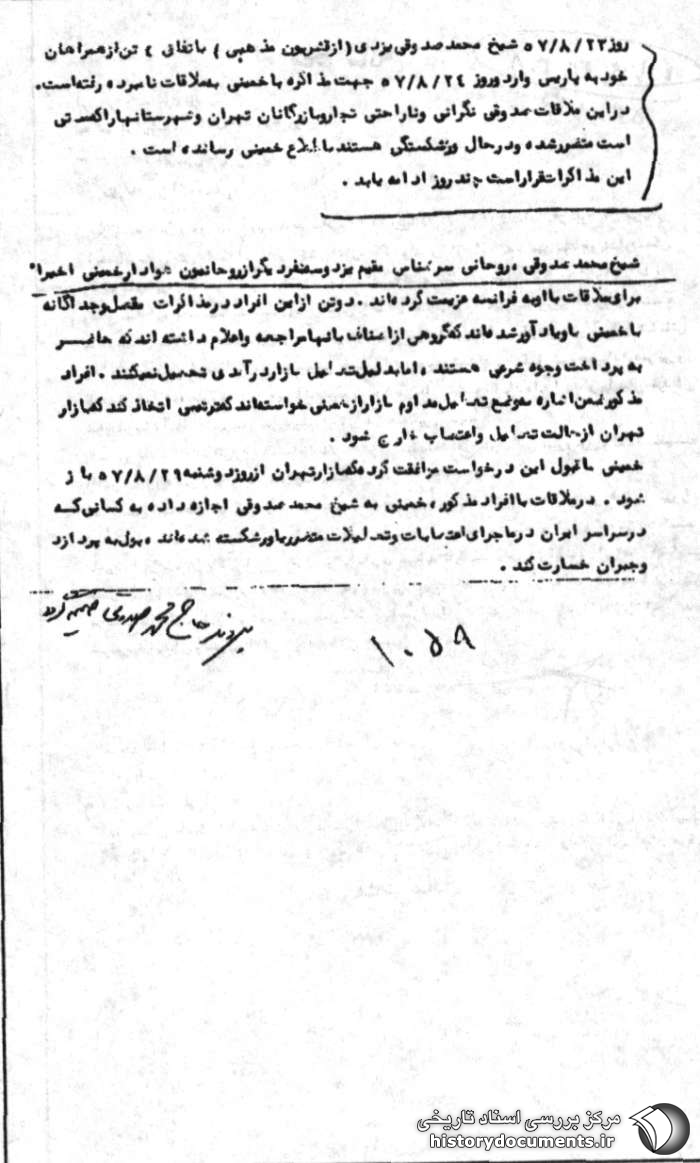 روز ۵۷/۸/۲۳ شیخ محمد صدوقی یزدی (از قشریون مذهبی) باتفاق ۴ تن از همراهان
خود به پاریس وارد وروز ۵۷/۸/۲۴ جهت مذاکره با خمینی به ملاقات نامبرده رفته است.
در این ملاقات صدوقی نگرانی وناراحتی تجار وبازرگانان تهران وشهرستانها را که مدتی
است متضرر شده و در حال ورشکستگی هستند باطلاع خمینی رسانده است.
این مذاکرات قرار است چند روز ادامه یابد.
شیخ محمد صدوقی، روحانی سرشناس مقیم یزد و سه نفر دیگر از روحانیون هوادار خمینی اخیرا"
برای ملاقات با او به فرانسه عزیمت کرده‌اند. دو تن از این افراد در مذاکرات مفصل وجداگانه
با خمینی باو یاد آور شده‌اند که گروهی از اصناف بآنها مراجعه واعلام داشته اند که حاضر
به پرداخت وجوه شرعی هستند، اما بدلیل تعطیل بازار درآمدی تحصیل نمیکنند. افراد
مذکور ضمن اشاره بوضع تعطیل مداوم بازار از خمینی خواسته‌اند که ترتیبی اتخاذ کند که بازار
تهران از حالت تعطیل واعتصاب خارج شود.
خمینی با قبول این درخواست موافقت کرده که بازار تهران از روز دوشنبه ۵۷/۸/۲۹ باز
شود. در ملاقات با افراد مذکور، خمینی به شیخ محمد صدوقی اجازه داده به کسانی که
در سراسر ایران در ماجرای اعتصابات وتعطیلات متضرر یا ورشکسته شده‌اند، پول بپردازد
وجبران خسارت کند.
محمد صدوقی
۱۰۵۹
مرکز بررسی اسناد تاریخی
historydocuments.ir